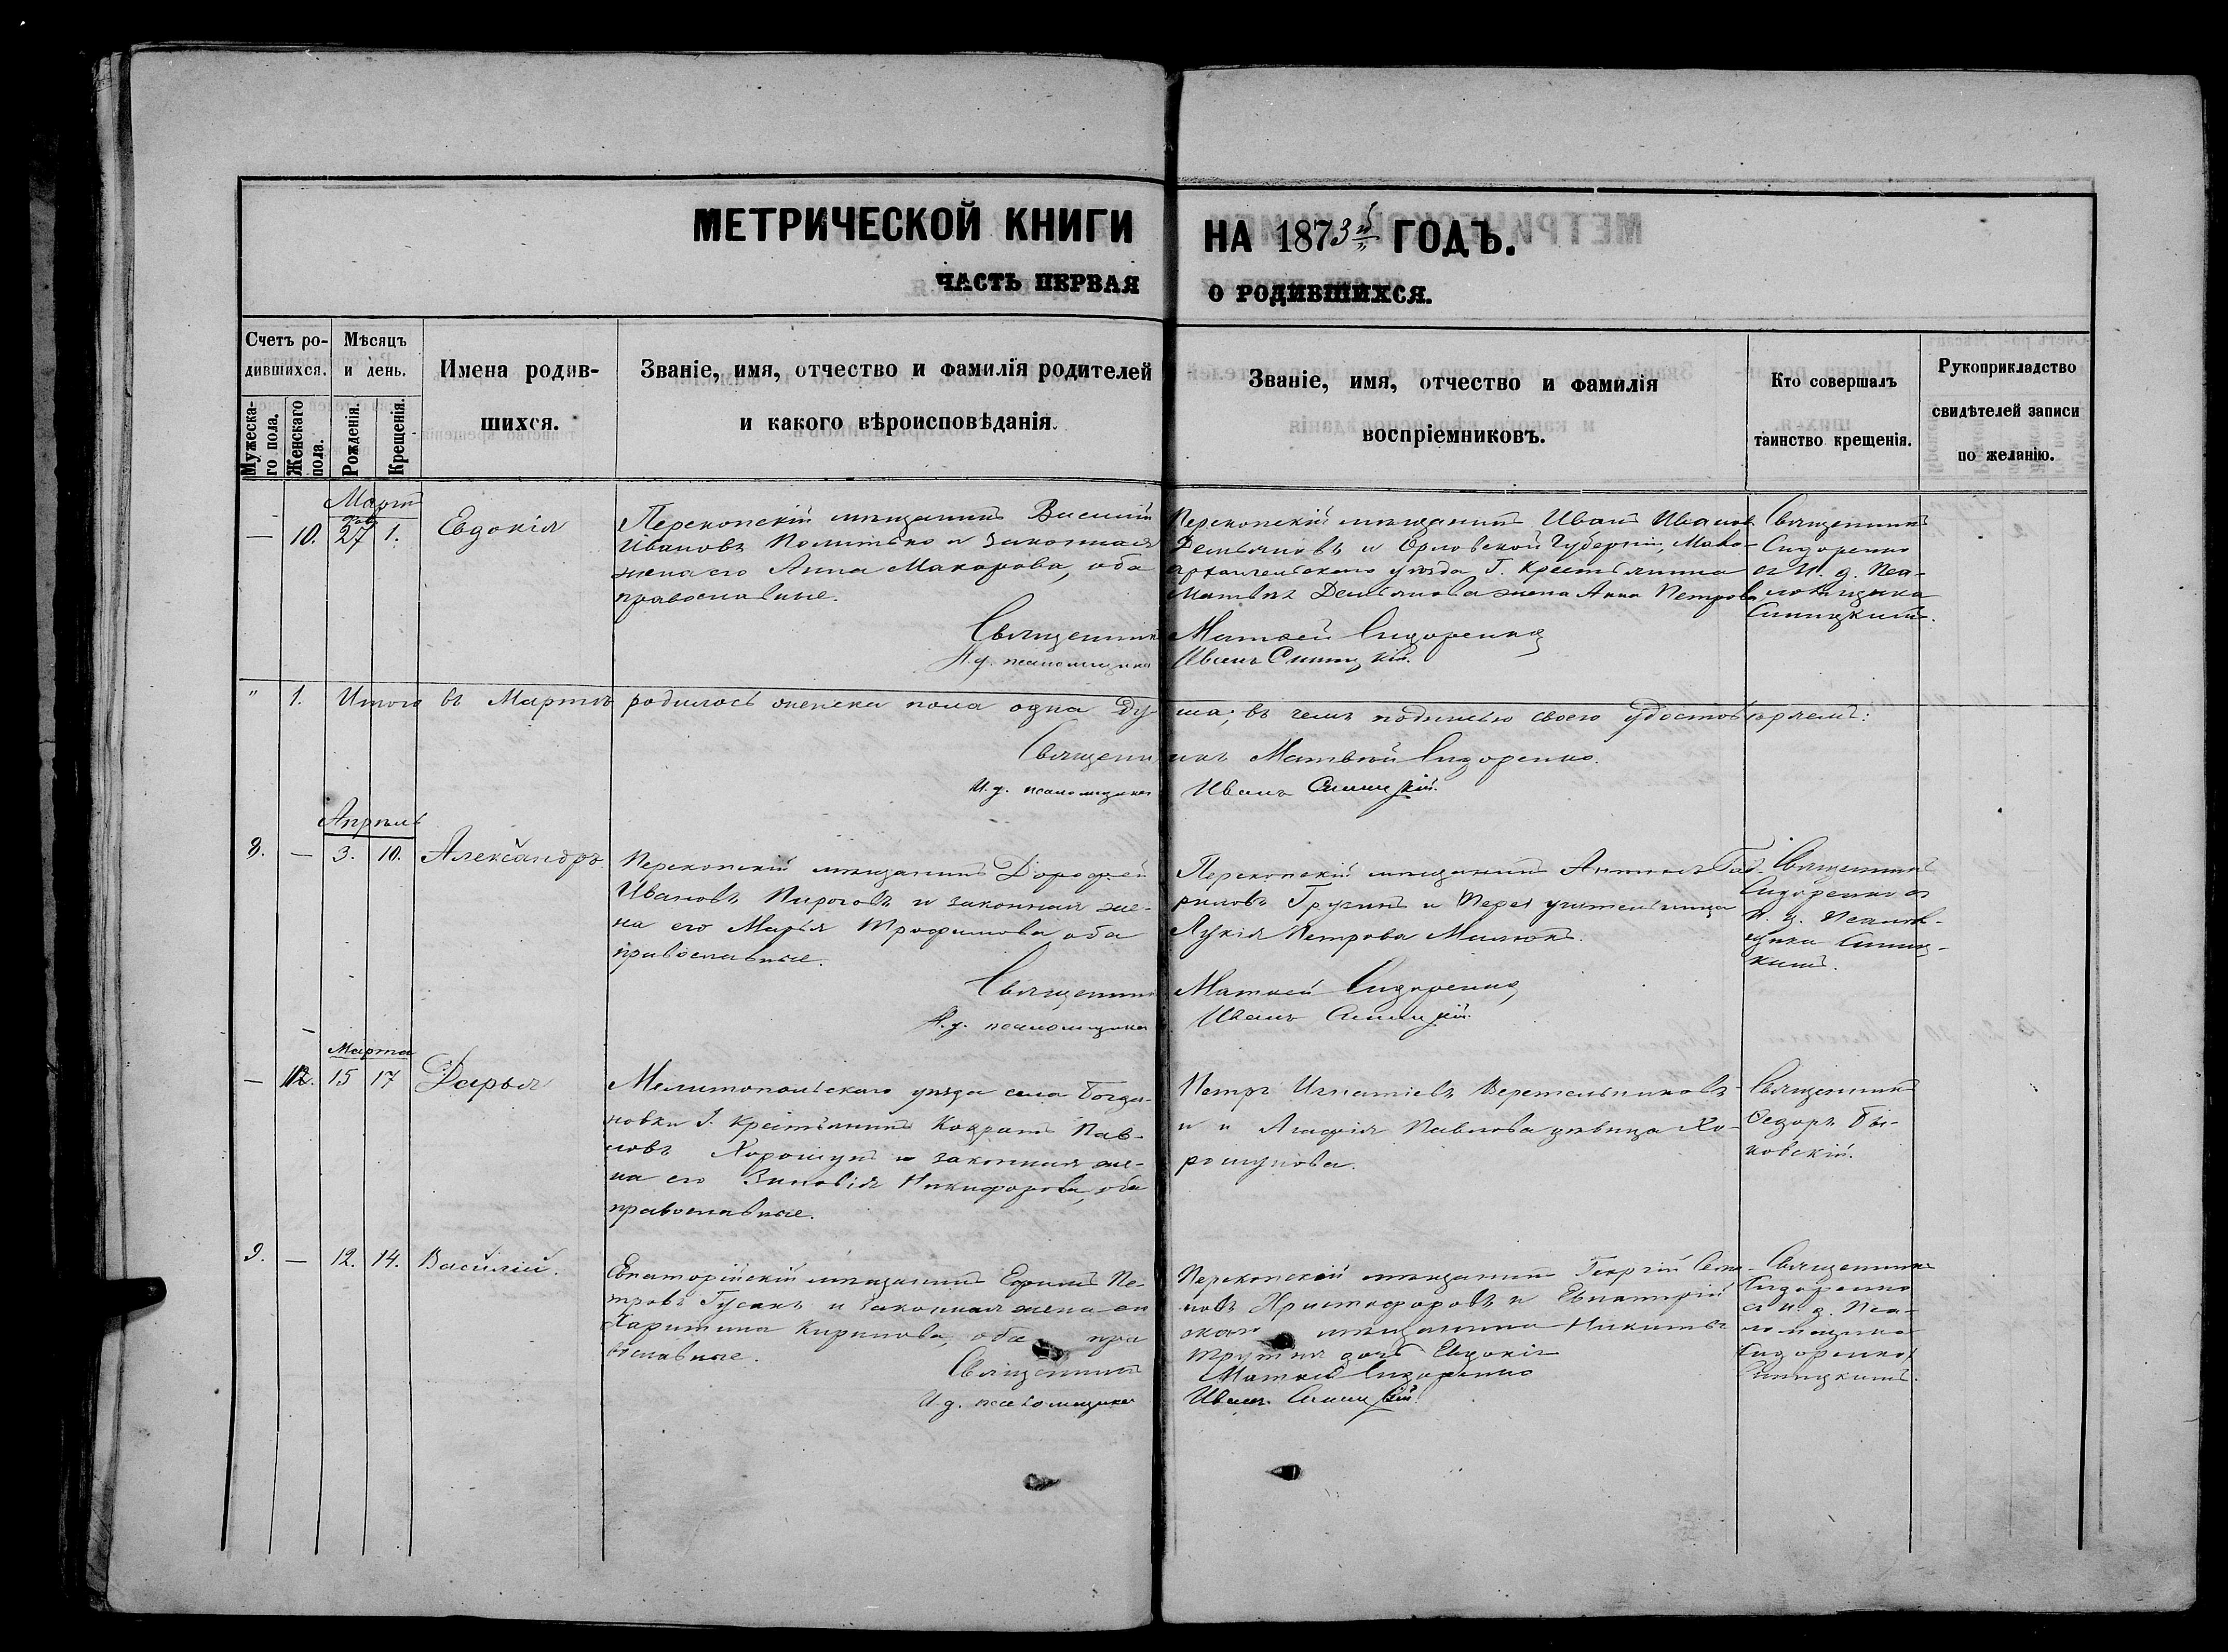 МЕТРИЧЕСКОЙ КНИГИ
ЧАСТЬ ПЕРВАЯ
НА 1873й ГОДЪ.
О РОДИВШИХСЯ.
Счетъ ро-
дившихся.
Мужеска-
го пола.
Женскаго
пола.
Мѣсяцъ
и день.
Рожденія.
Крещенія.
Имена родив-
шихся.
Званіе, имя, отчество и фамилія родителей
и какого вѣроисповѣданія.
Званіе, имя, отчество и фамилія
воспріемниковъ.
Кто совершалъ
таинство крещенія.
Рукоприкладство
свидѣтелей записи
по желанію.
Мартъ
— 10. 27 1. Евдокія
Перекопскій мѣщанинъ Василій
Ивановъ и законная
жена его Анна Макарова, оба
православные.
Перекопскій мѣщанинъ Иванъ Ивановъ
Демьяновъ и Орловской Губерніи, Мало-
архангельскаго уѣзда Г. Крестьянина
Матвѣя Демьянова жена Анна Петрова
Священникъ
Сидоренко
съ И. д. Пса-
ломщика
Синицкимъ.
Священникъ Матвей Сидоренко
И. д. псаломщика Иванъ Синицкій.
" 1. Итого въ Мартѣ родилось женска пола одна Ду-
ша, въ чемъ подписью своею удостовѣряемъ:
Священникъ Матвѣй Сидоренко.
И. д. псаломщика Иванъ Синицкій.
Апрѣль
8. — 3. 10. Александръ
Перекопскій мѣщанинъ Дорофей
Ивановъ Пироговъ и законная же-
на его Марья Трофимова оба
православные.
Перекопскій мѣщанинъ Гав-
риловъ и учительница
Лукія Петрова
Священникъ
Сидоренко съ
И. д. Псалом-
щика Синиц-
кимъ.
Священникъ Матвей Сидоренко
И. д. псаломщика Иванъ Синицкій.
Марта
— 12. 15 17 Дарья
Мелитопольскаго уѣзда села Богда-
новки Г. Крестьянинъ Кодратъ Пав-
ловъ Хорошунъ и законная же-
на его Зиновія Никифорова, оба
православные.
Петръ Игнатіевъ Веретельниковъ
и Агафія Павлова дѣвица Хо-
рошунова.
Священникъ
Ѳедоръ Бы-
ковскій.
9. — 12. 14. Василій.
Евпаторійскій мѣщанинъ Ефимъ Пе-
тровъ Гусакъ и законная жена его
Харитина Кирилова, оба пра
вославные.
Перекопскій мѣщанинъ Георгій Семе-
новъ Христофоровъ и Евпаторій
скаго мѣщанина Никиты
дочь Евдокія
Священникъ
Сидоренко
съ и. д. Пса-
ломщика
Синицкимъ.
Священникъ Матвей Сидоренко
И. д. псаломщика Иванъ Синицкій.